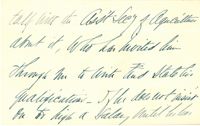 half with the Asst Secy of Agriculture
about it, who has invited him
through me to write and state his
qualifications - If he does not insist
on too high a Salary,